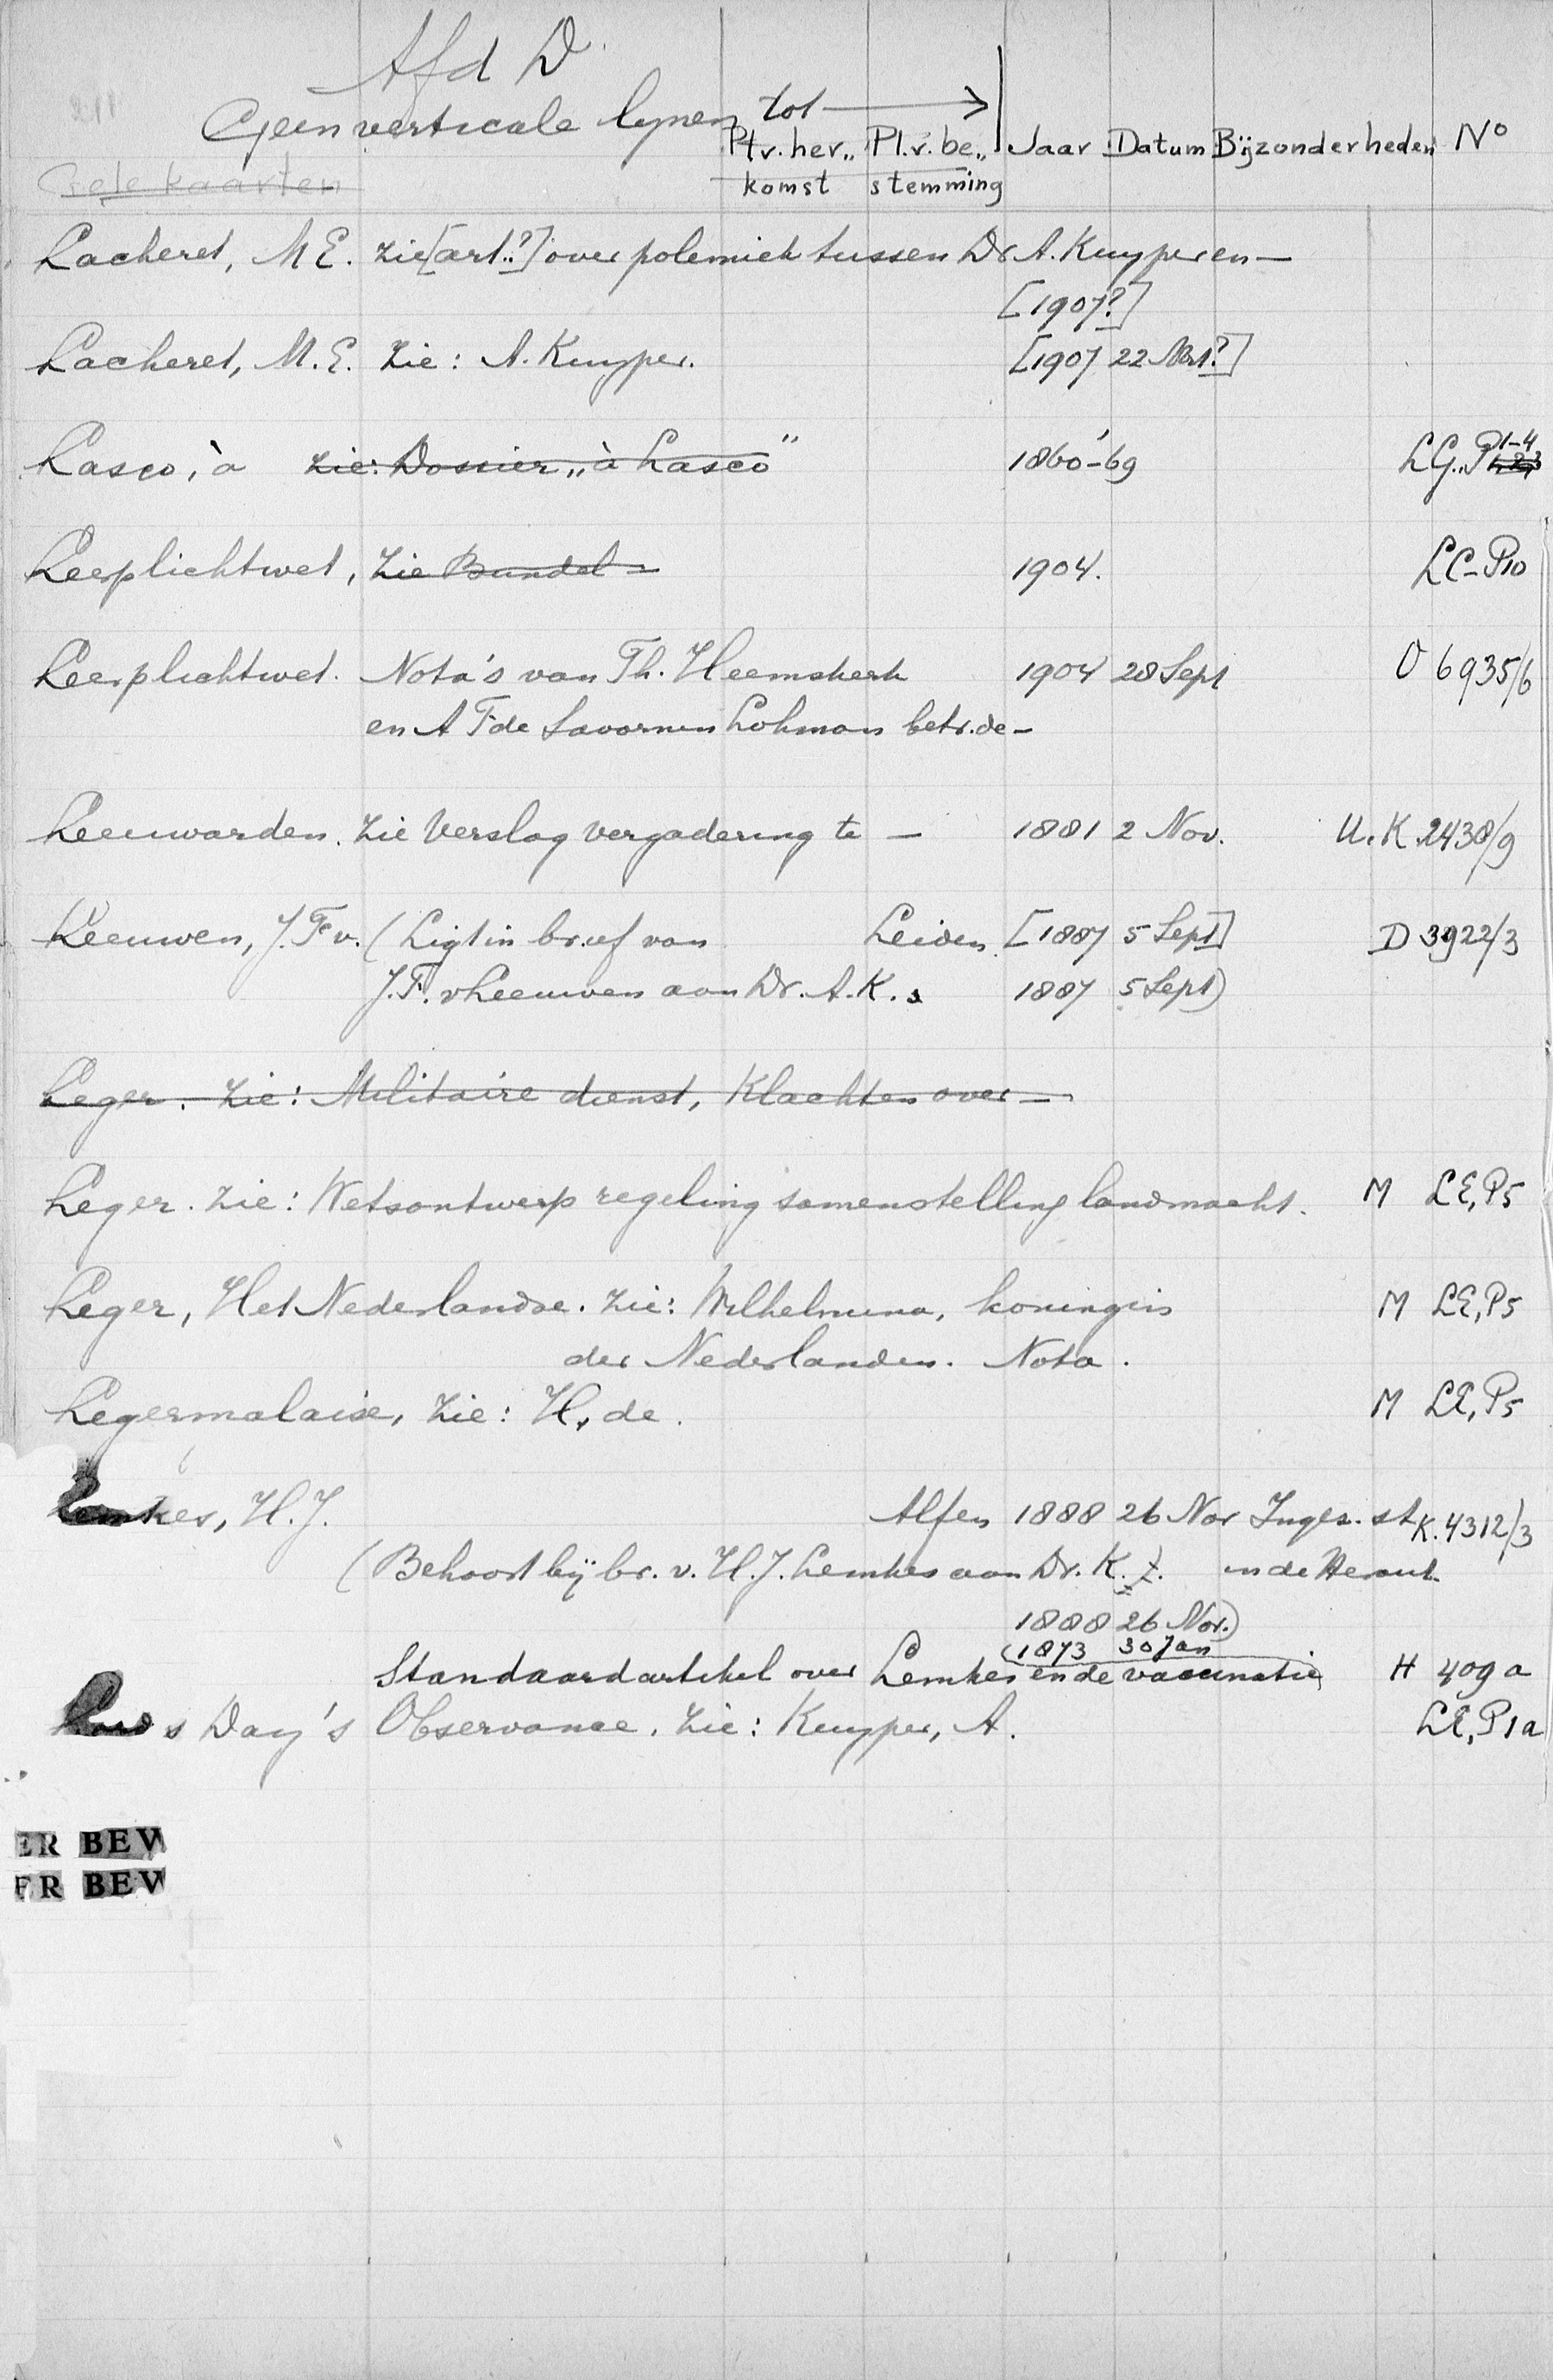 Afd D
Geen verticale lynen tot
Pl.v.her„ Pl.v.be„ Jaar Datum Bijzonderheden No
Gele kaarten komst stemming
Lacheret, M E. zie [art..?] over polemiek tussen Dr A. Kuyper en —
[1907?]
Lacheret, M. E. Zie: A. Kuyper. [1907 22 Mrt?]
Lasco, à zie: Dossier „à Lasco" 1860-'69 LG.,P 1-4
Leerplichtwet, Zie Bundel — 1904. LC-P10
Leerplichtwet. Nota's van Th. Heemskerk 1904 28 Sept O 6935/6
en A F de Savornin Lohman betr. de —
Leeuwarden. Zie Verslag Vergadering te — 1881 2 Nov. U.K. 2438/9
Leeuwen, J. F. v. (Ligt in brief van Leiden [1887 5 Sept] D 3922/3
J. F. v Leeuwen aan Dr. A. K. 1887 5 Sept)
Leger. Zie: Militaire dienst, Klachten over —
Leger. Zie: Wetsontwerp regeling samenstelling landmacht. M LE,P5
Leger, Het Nederlandse. Zie: Wilhelmina, koningin M LE,P5
der Nederlanden. Nota.
Legermalaise, Zie: H, de. M LE,P5
Lemkes, H. J. Alfen 1888 26 Nov Ingez. st K. 4312/3
(Behoort bij br. v. H. J. Lemkes aan Dr. K. in de Heraut
1888 26 Nov.)
(1873 30 Jan
Standaardartikel over Lemkes en de vaccinatie H 409a
Lord s Day's Observance. Zie: Kuyper, A. LE,P1a
ER BEW
ER BEW